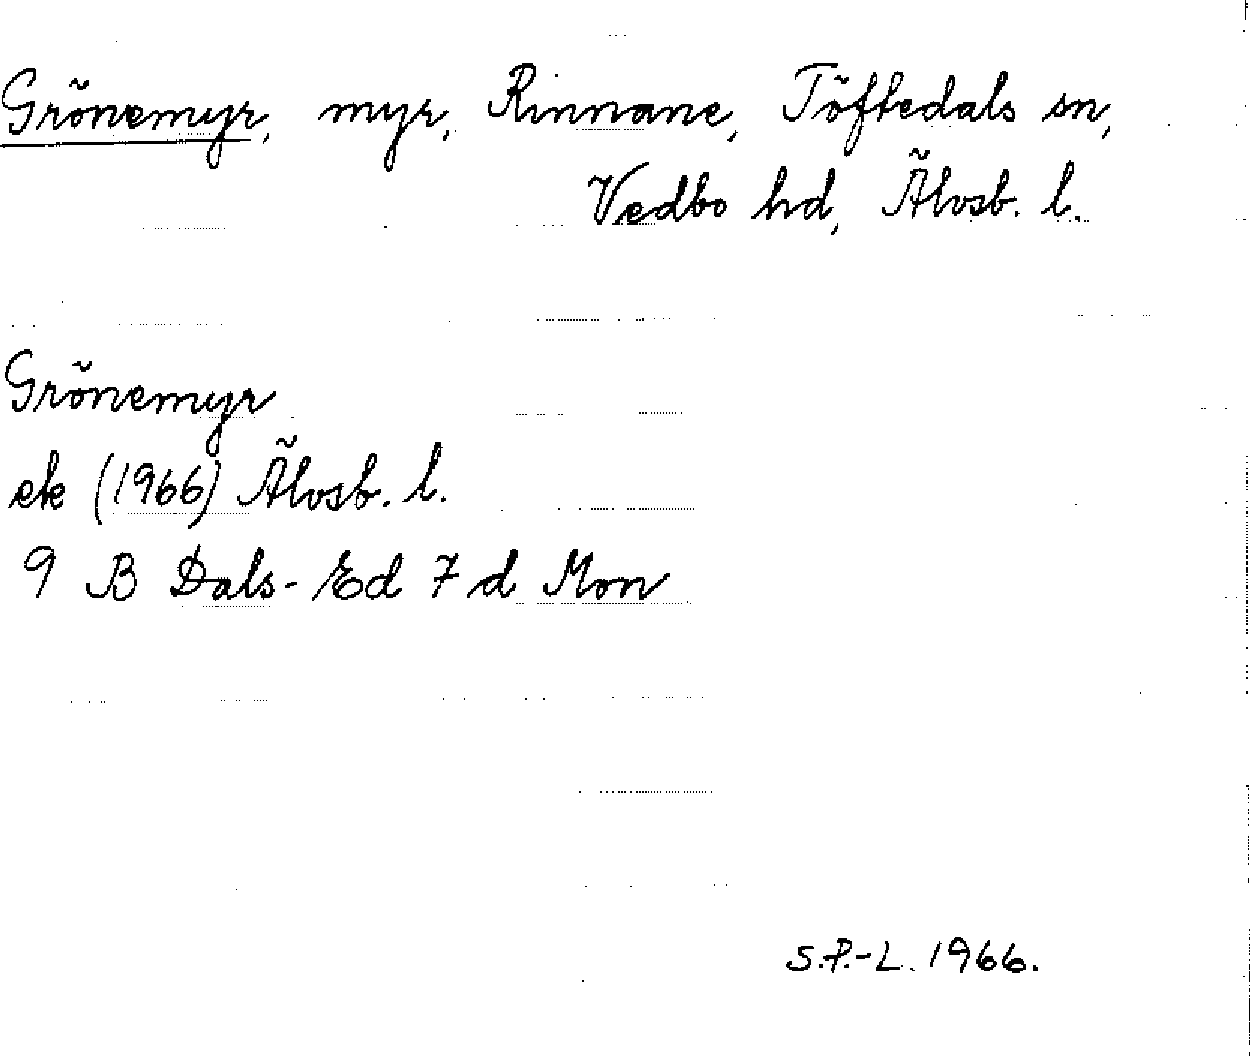 Grönemyr, myr, Rinnane, Töftedals sn,
Vedbo hd, Älvsb. l.
Grönemyr
ek (1966) Älvsb. l.
9 B Dals-Ed 7 d Mon
S.P.-L. 1966.